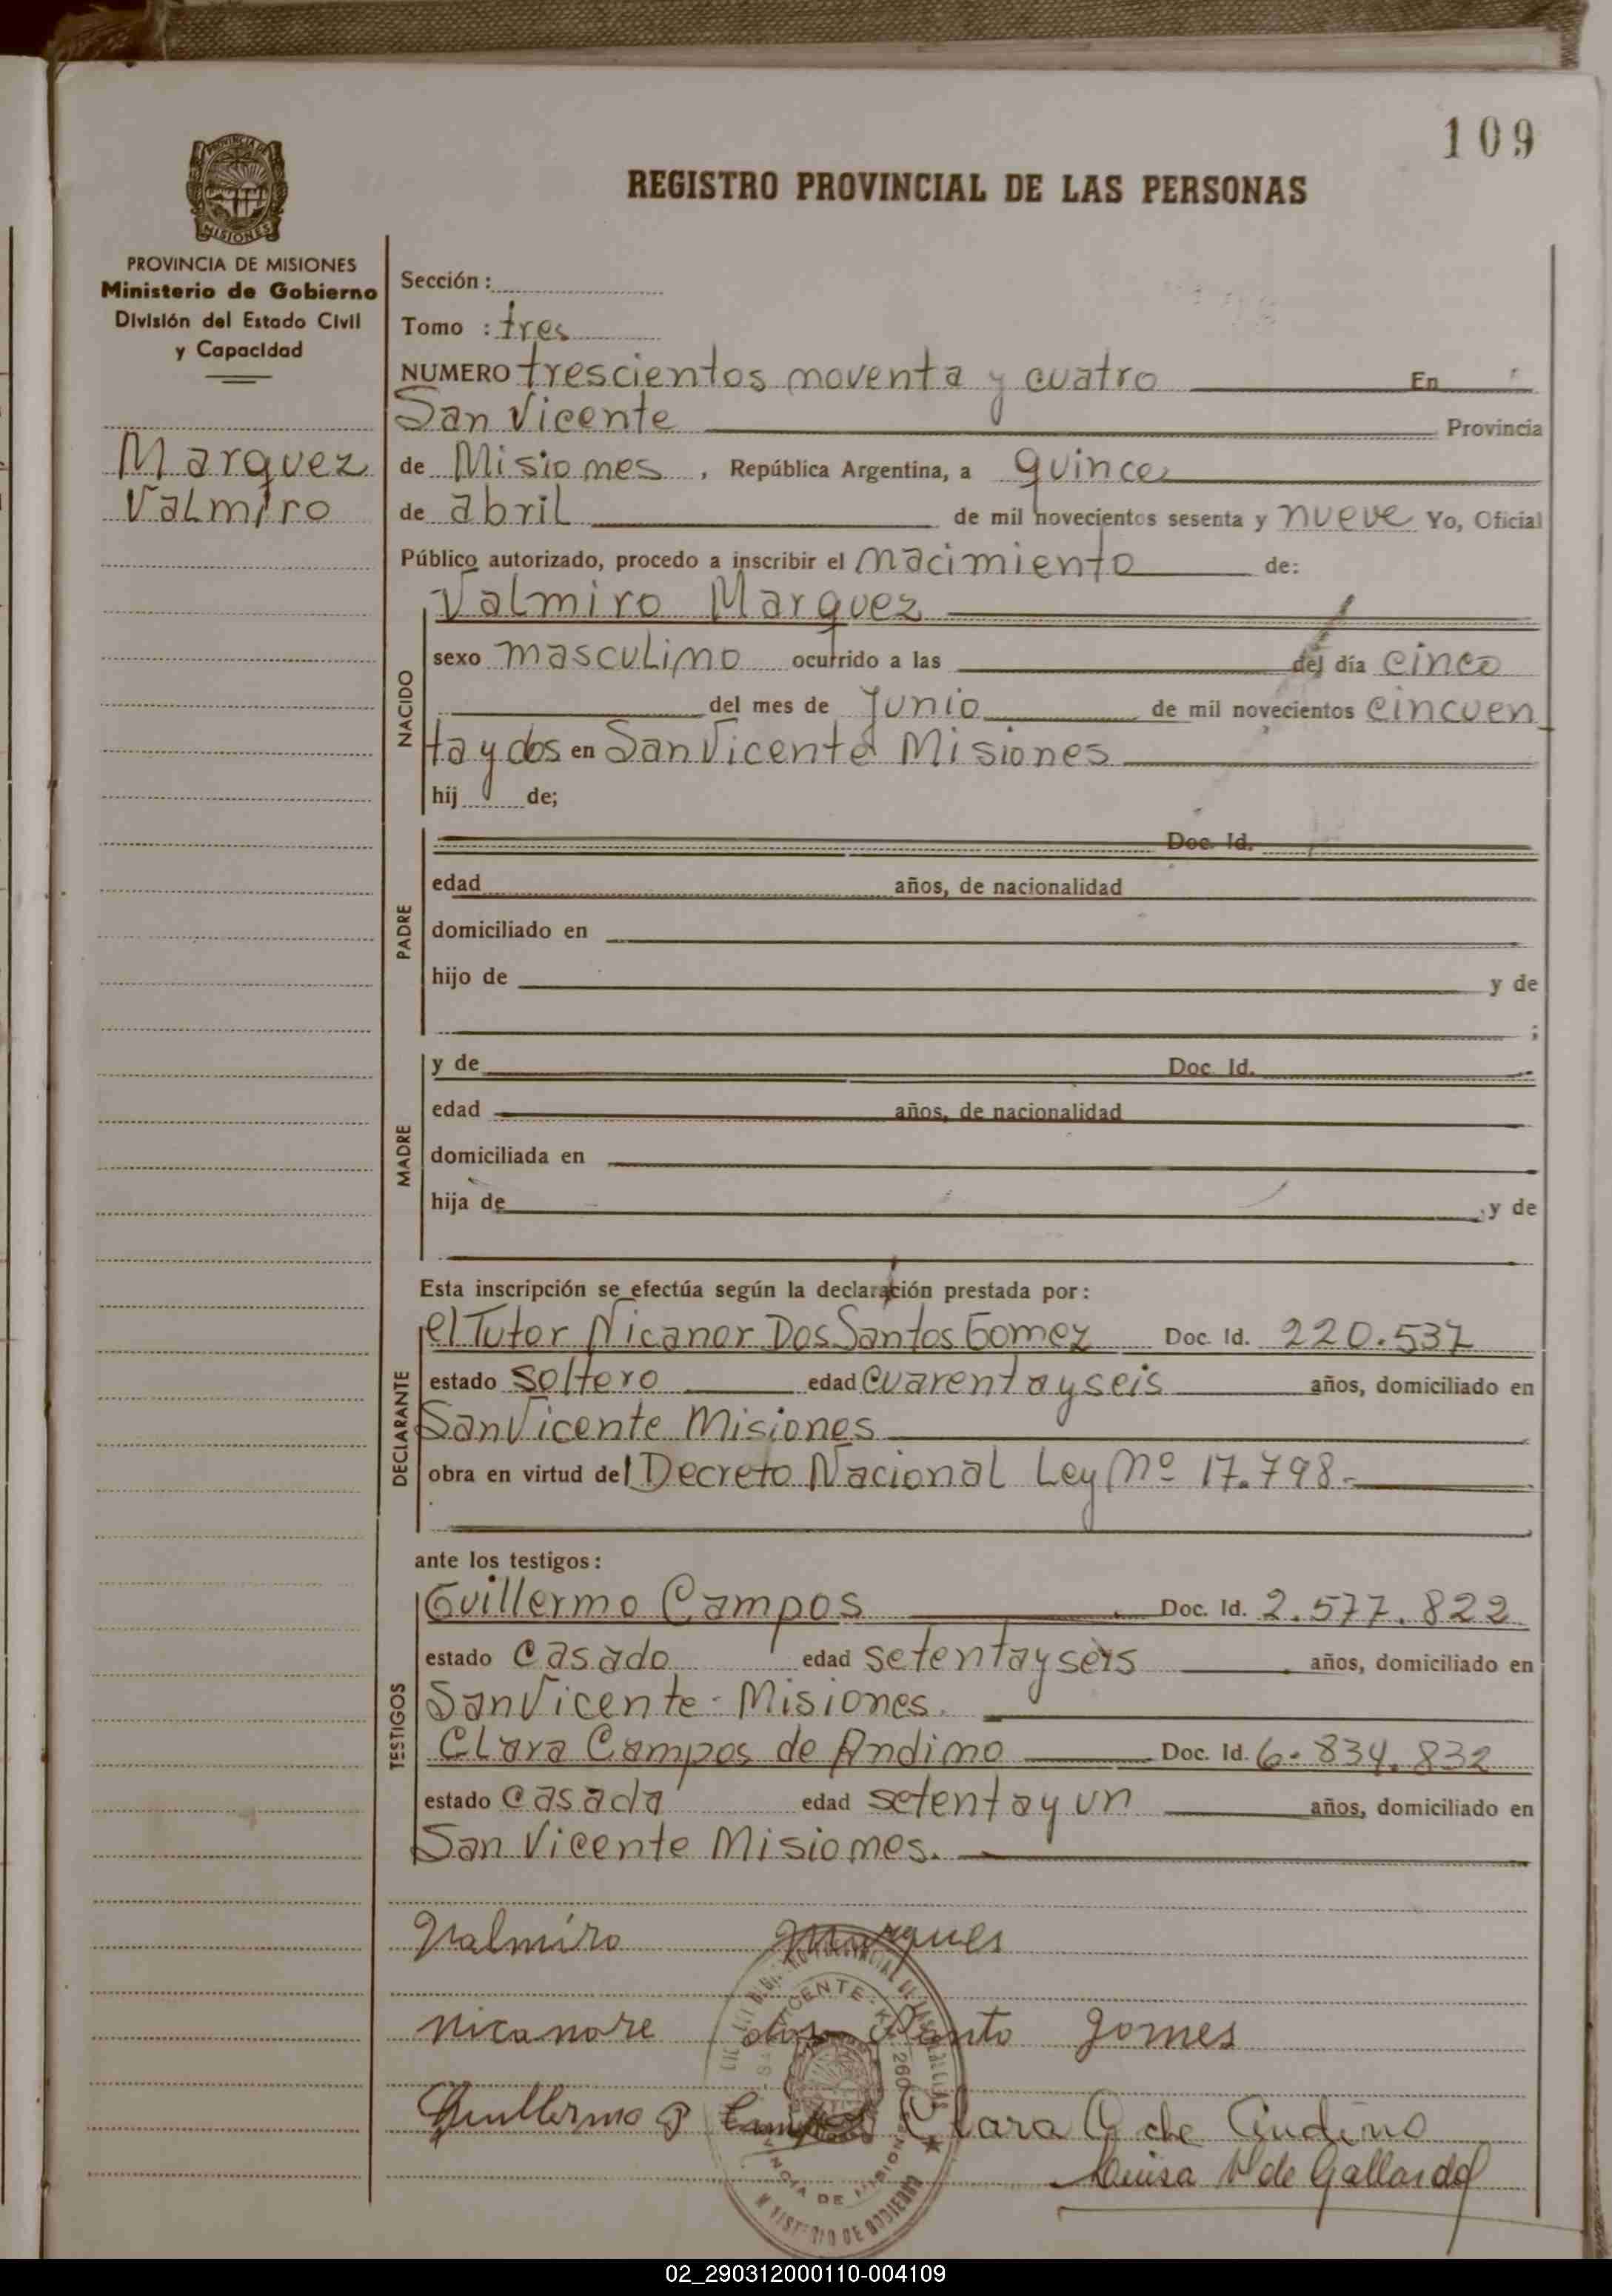 109
REGISTRO PROVINCIAL DE LAS PERSONAS
MISIONES
PROVINCIA DE MISIONES
Ministerio de Gobierno
División del Estado Civil
y Capacidad
Marquez
Valmiro
Sección :
Tomo : tres
NUMERO trescientos noventa y cuatro En
San Vicente Provincia
de Misiones , República Argentina, a quince
de abril de mil novecientos sesenta y nueve Yo, Oficial
Público autorizado, procedo a inscribir el nacimiento de:
NACIDO
Valmiro Marquez
sexo masculino ocurrido a las del día cinco
del mes de Junio de mil novecientos cincuen
ta y dos en San Vicente Misiones
hij de;
PADRE
Doc. Id.
edad años, de nacionalidad
domiciliado en
hijo de y de
;
MADRE
y de Doc. Id.
edad años, de nacionalidad
domiciliada en
hija de y de
Esta inscripción se efectúa según la declaración prestada por:
DECLARANTE
el Tutor Nicanor Dos Santos Gomez Doc. Id. 220.537
estado Soltero edad cuarenta y seis años, domiciliado en
San Vicente Misiones
obra en virtud del Decreto Nacional Ley Nº 17.798.-
ante los testigos:
TESTIGOS
Guillermo Campos Doc. Id. 2.577.822
estado casado edad setenta y seis años, domiciliado en
San Vicente - Misiones.
Clara Campos de Andino Doc. Id. 6.834.832
estado casada edad setenta y un años, domiciliado en
San Vicente Misiones.
Valmiro Marques
nicanore dos Santo gomes
Guillermo P Campos Clara C de Andino
Luisa V de Gallardo
02_290312000110-004109